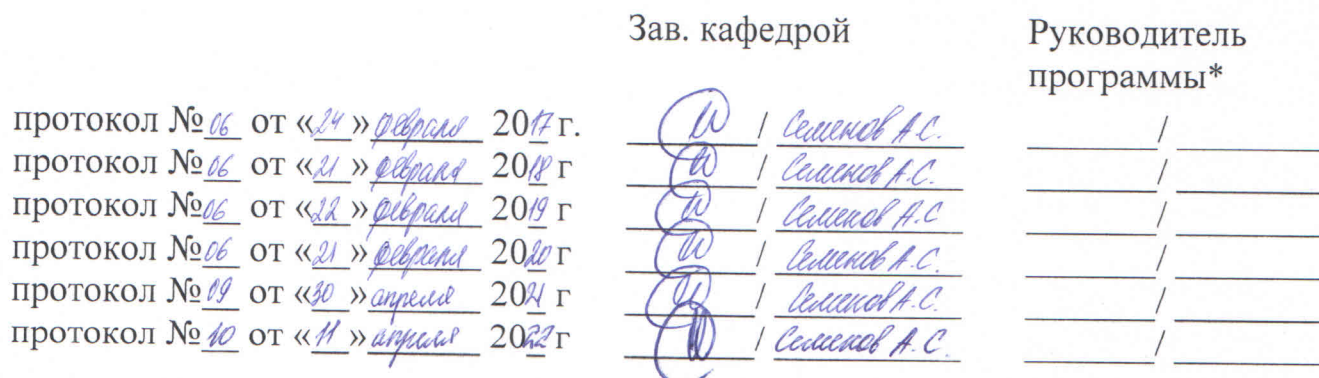 Зав. кафедрой Руководитель
программы*
протокол №06 от «24» февраля 2017 г. / Семенов А.С. /
протокол №06 от «21» февраля 2018 г / Семенов А.С. /
протокол №06 от «22» февраля 2019 г / Семенов А.С /
протокол №06 от «21» февраля 2020 г / Семенов А.С. /
протокол №09 от «30» апреля 2021 г / Семенов А.С. /
протокол №10 от «11» апреля 2022 г / Семенов А.С. /